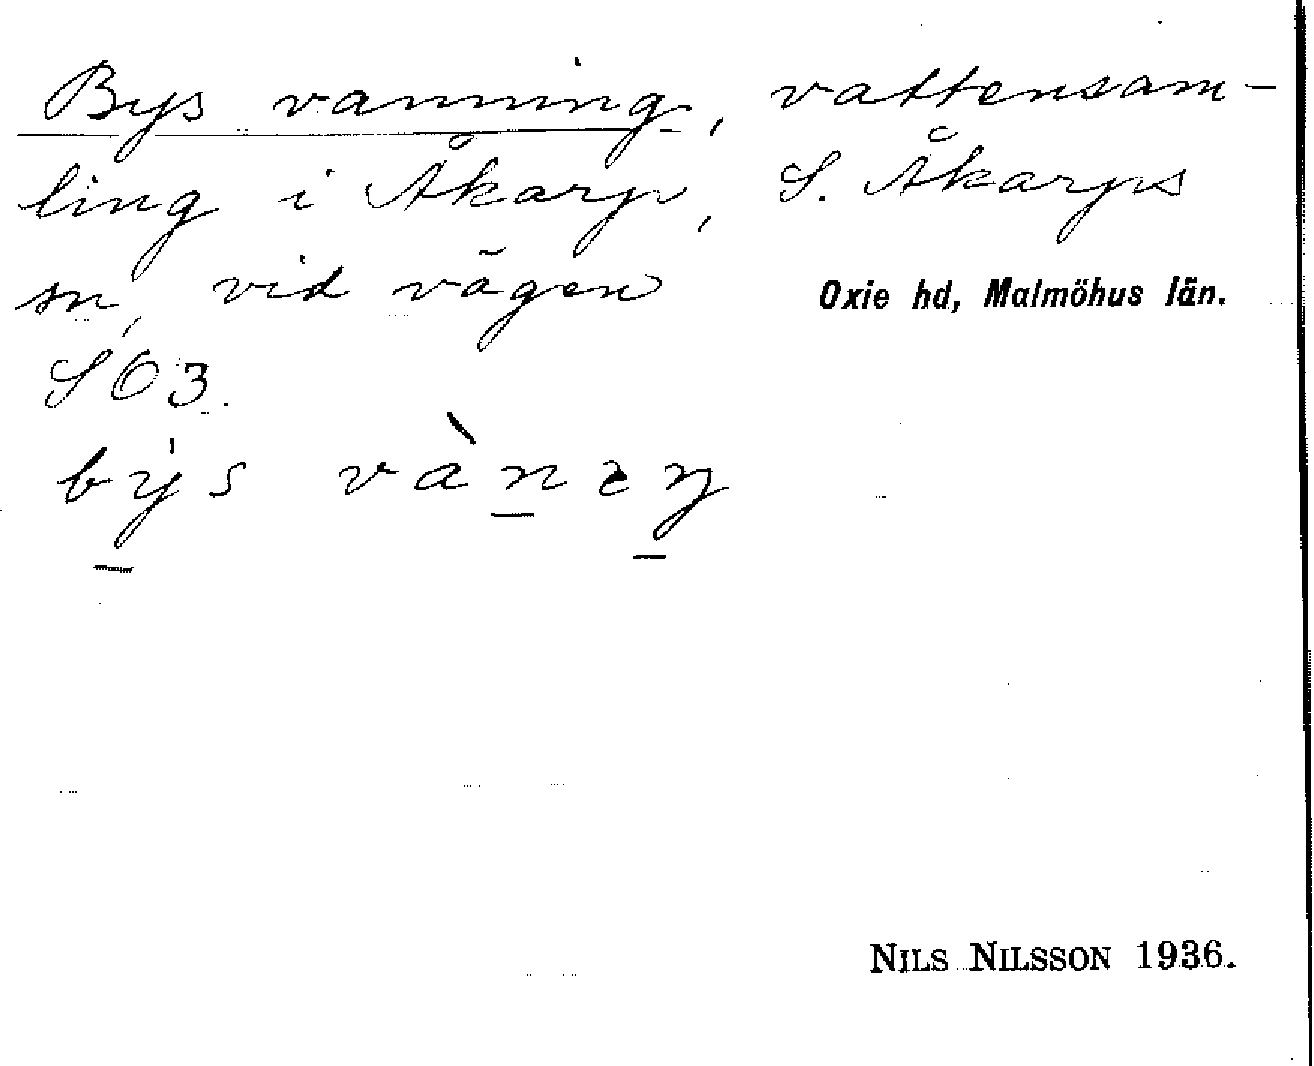 Bys vanning, vattensam-
ling i Åkarp, S. Åkarps
sn, vid vägen
Oxie hd, Malmöhus län.
SÖ3.
by̍s vànıŋ
NILS NILSSON 1936.